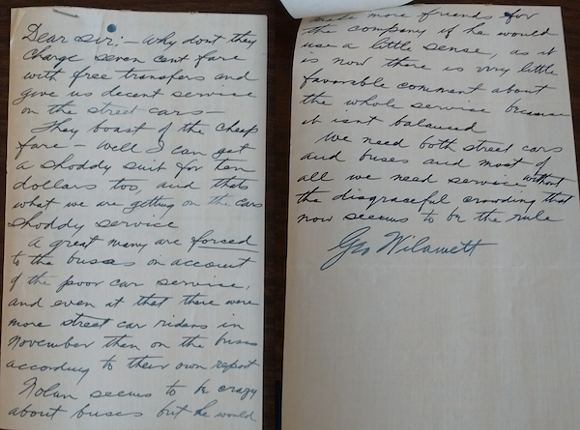 Dear Sir: — Why dont they
charge seven cent fare
with free transfers and
give us decent service
on the street cars —
They boast of the cheap
fare — well I can get
a shoddy suit for ten
dollars too, and thats
what we are getting on the cars
shoddy service
A great many are forced
to the buses on account
of the poor car service,
and even at that there were
more street car riders in
November then on the buses
according to their own report
Nolan seems to be crazy
about buses but he would
make more friends for
the company if he would
use a little sense, as it
is now there is very little
favorable comment about
the whole service because
it isnt balanced
We need both street cars
and buses and most of
all we need service without
the disgraceful crowding that
now seems to be the rule
Geo